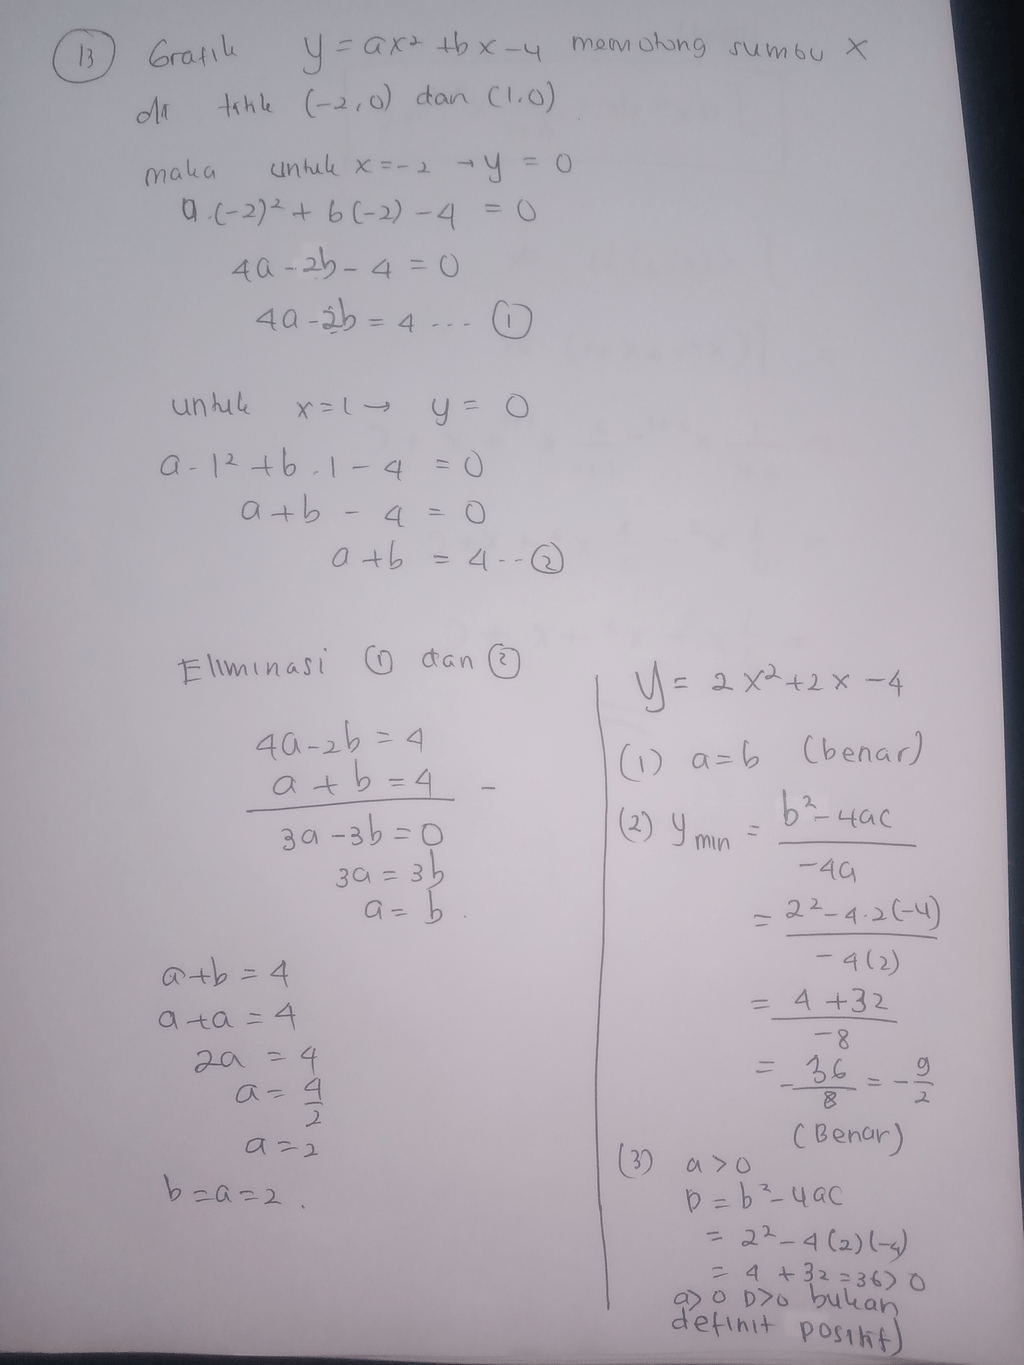 13 Grafik y = ax² + bx - 4 memotong sumbu x
di titik (-2,0) dan (1,0)
maka untuk x = -2 → y = 0
a.(-2)² + b(-2) - 4 = 0
4a - 2b - 4 = 0
4a - 2b = 4 ... ①
untuk x = 1 → y = 0
a.1² + b.1 - 4 = 0
a + b - 4 = 0
a + b = 4 ... ②
Eliminasi ① dan ②
4a - 2b = 4
a + b = 4 -
3a - 3b = 0
3a = 3b
a = b.
a + b = 4
a + a = 4
2a = 4
a = 4/2
a = 2
b = a = 2.
y = 2x² + 2x - 4
(1) a = b (benar)
(2) y min = b² - 4ac / -4a
= 2² - 4.2(-4) / -4(2)
= 4 + 32 / -8
= -36/8 = -9/2
(Benar)
(3) a > 0
D = b² - 4ac
= 2² - 4(2)(-4)
= 4 + 32 = 36 > 0
a > 0 D > 0 bukan
definit positif)